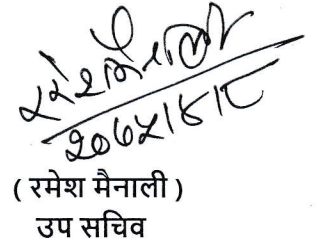 रमेश मैनाली
२०७५।४।८
( रमेश मैनाली )
उप सचिव